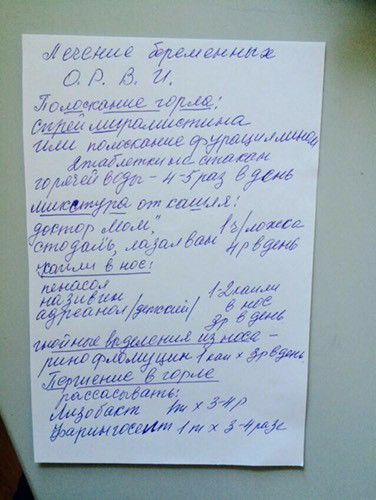 Лечение беременных
О.Р.В.И.
Полоскание горла:
спрей мирамистина
или полоскание фурациллином
2 таблетки на стакан
горячей воды – 4-5 раз в день
микстура от кашля:
доктор Мом," 1 ч/ложка
стодаль, лазалван 4 р в день
капли в нос:
пеносол
називин 1-2 капли
адрианол /детский/ в нос
3р в день
гнойные выделения из носа –
ринофлюимуцил 1 кап х 3р в день
Першение в горле
рассасывать:
Лизобакт 1т х 3-4р
фарингосепт 1т х 3-4 раза